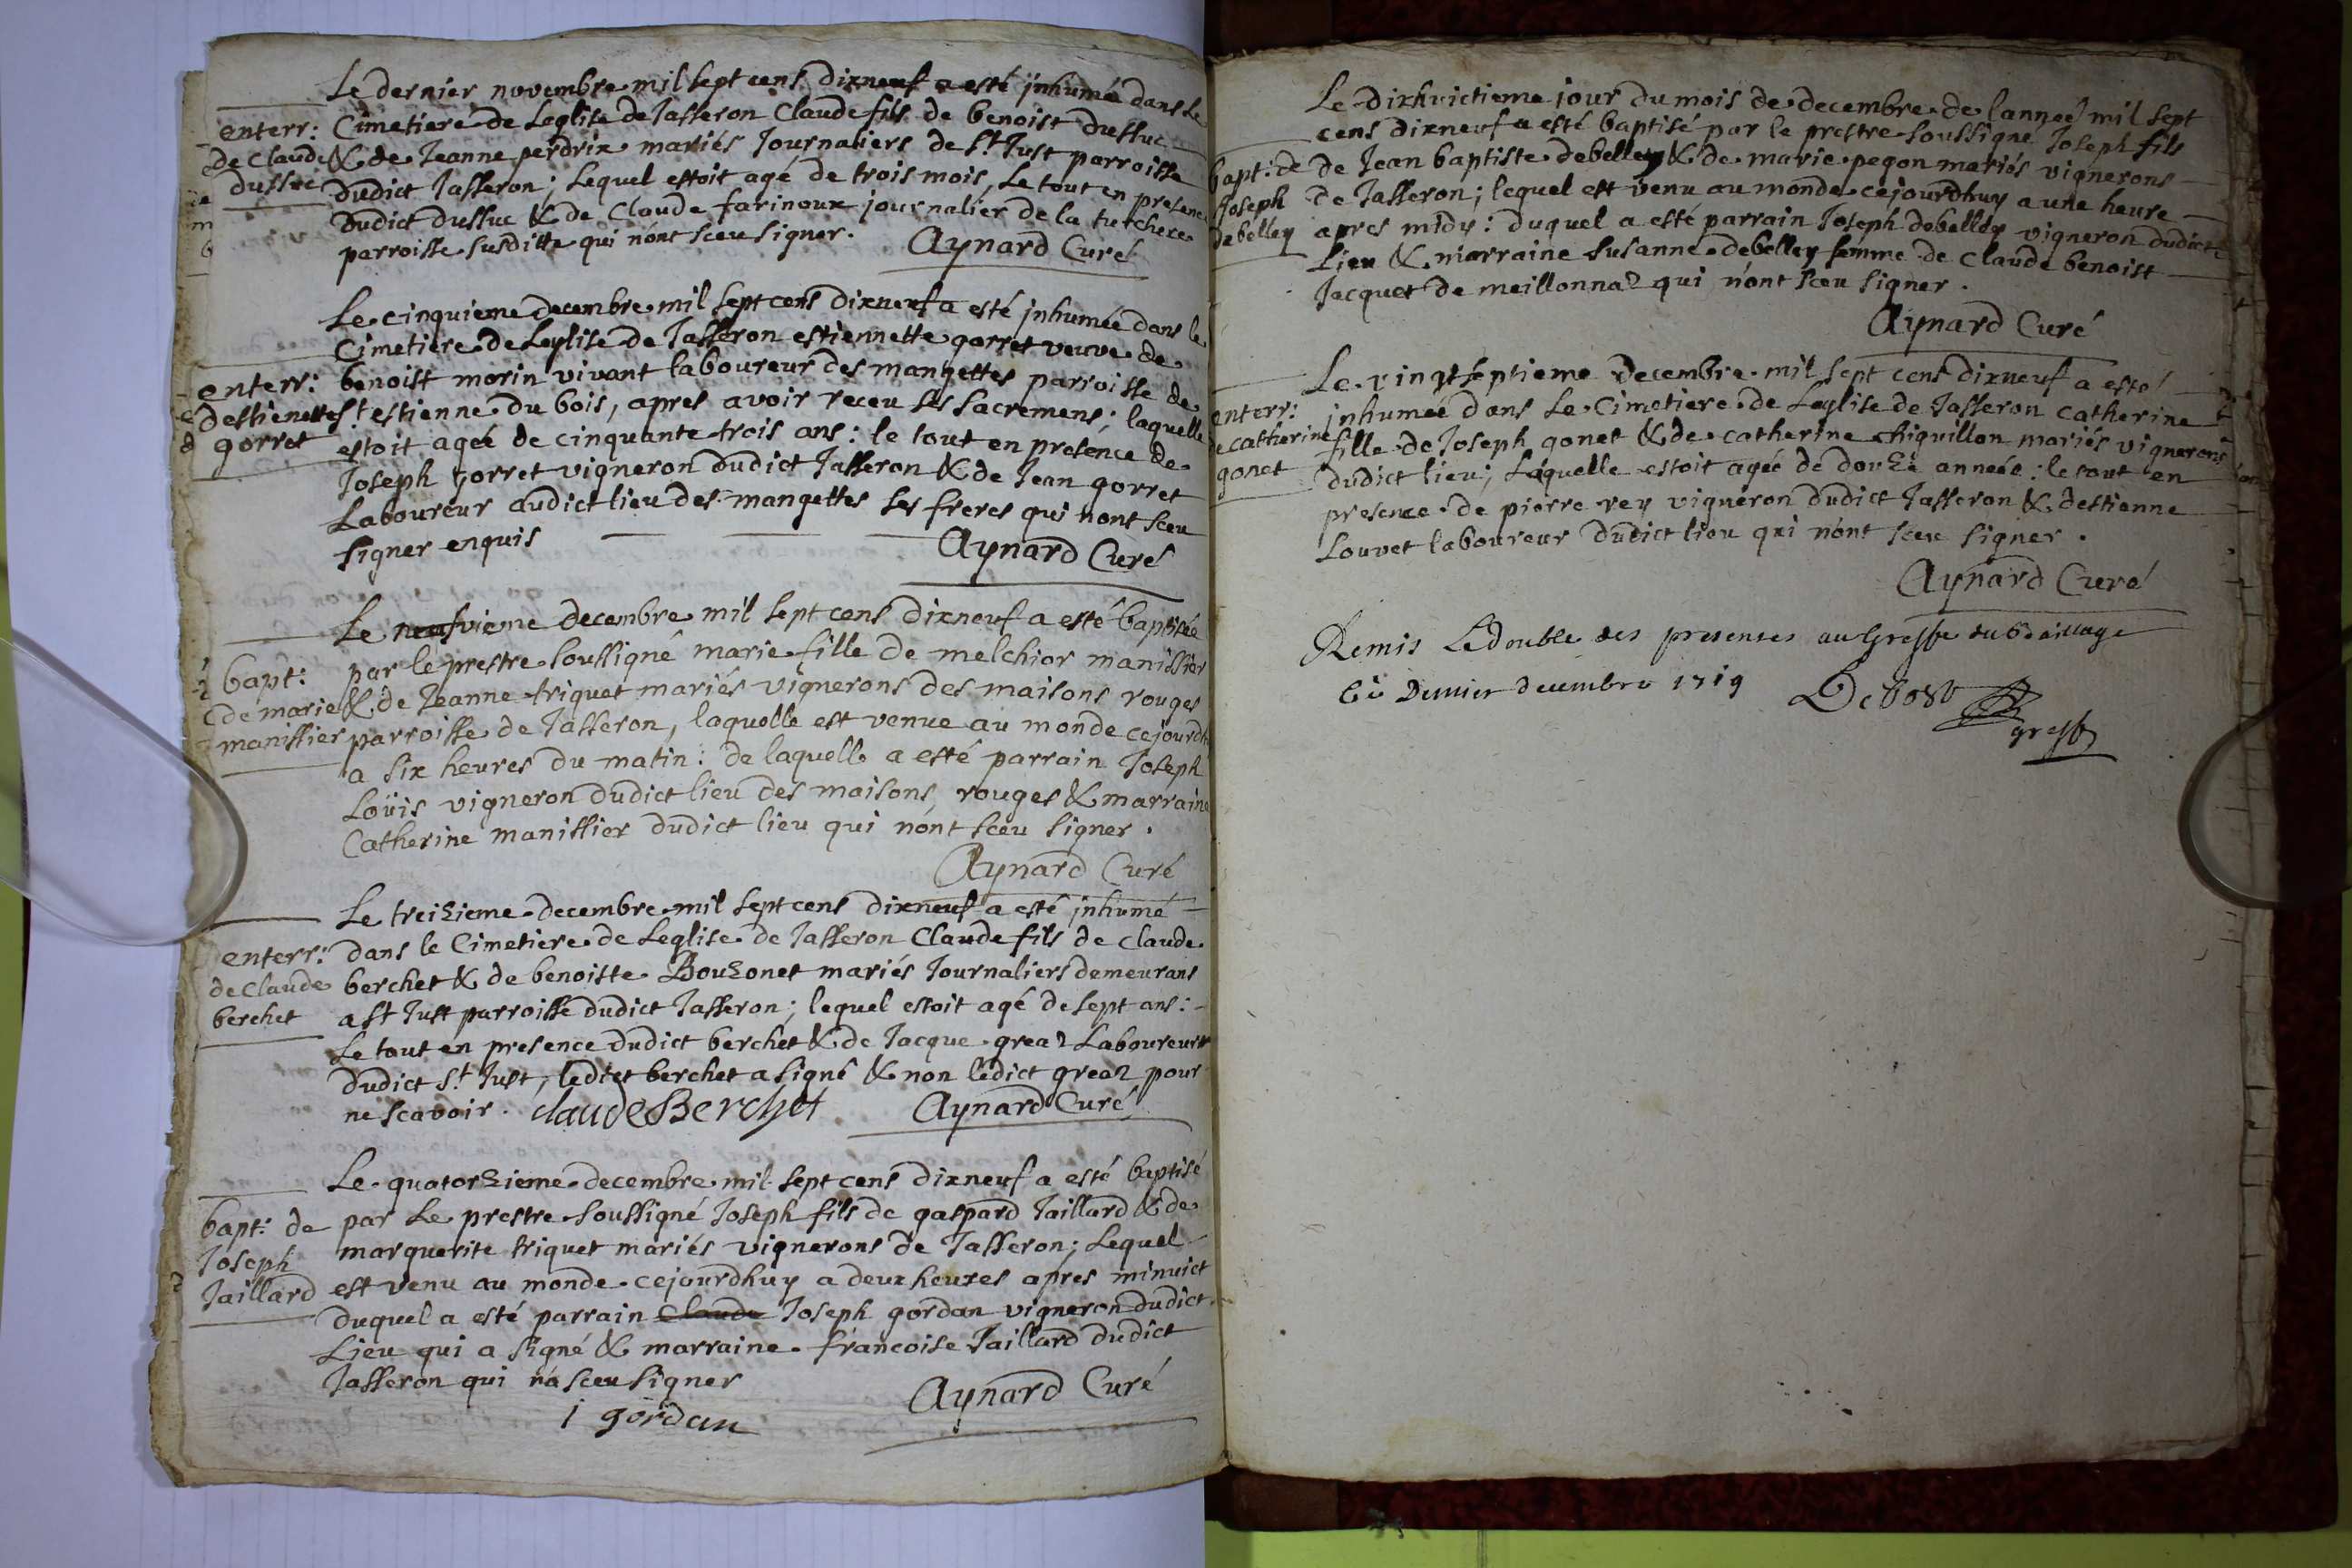 Le dernier novembre mil sept cens dixneuf a esté inhumé dans Le
enterr: Cimetiere de Leglise de Jasseron Claude fils de benoist dussuc
de Claude & de Jeanne perdrix mariés Journaliers de St Just parroisse
dussuc dudict Jasseron; Lequel estoit agé de trois mois, Le tout en presence
dudict dussuc & de Claude farinoux journalier de la tutchere
parroisse susditte qui n'ont sceu signer.
Aynard Curé
Le cinquieme decembre mil sept cens dixneuf a esté inhumée dans le
Cimetiere de Leglise de Jasseron estiennette gorret veuve de
enterr: benoist morin vivant laboureur des mangettes parroisse de
destienette St estienne du bois, apres avoir receu ses sacremens; laquelle
gorret estoit agée de cinquante trois ans: le tout en presence de
Joseph gorret vigneron dudict Jasseron & de Jean gorret
Laboureur audict lieu des mangettes ses freres qui nont sceu
signer enquis
Aynard Curé
Le neufvieme decembre mil sept cens dixneuf a esté baptisée
bapt: par le prestre soussigné marie fille de melchior manissier
de marie & de Jeanne triquet mariés vignerons des maisons rouges
manissier parroisse de Jasseron, laquelle est venue au monde cejourdh
a six heures du matin: de laquelle a esté parrain Joseph
Loüis vigneron dudict lieu des maisons rouges & marraine
Catherine manissier dudict lieu qui n'ont sceu signer.
Aynard Curé
Le treizieme decembre mil sept cens dixneuf a esté inhumé
enterr: dans le Cimetiere de Leglise de Jasseron Claude fils de Claude
de Claude berchet & de benoiste Bouzonet mariés Journaliers demeurans
berchet a St Just parroisse dudict Jasseron; lequel estoit agé de sept ans:
Le tout en presence dudict berchet & de Jacque greaz Laboureur
dudict St Just, ledict berchet a signé & non ledict greaz pour
ne scavoir. Claude Berchet Aynard Curé
Le quatorzieme decembre mil sept cens dixneuf a esté baptisé
bapt: de par Le prestre soussigné Joseph fils de gaspard Jaillard & de
Joseph marguerite triquet mariés vignerons de Jasseron; Lequel
Jaillard est venu au monde cejourdhuy a deux heures apres minuict
duquel a esté parrain Claude Joseph gordan vigneron dudict
Lieu qui a signé & marraine francoise Jaillard dudict
Jasseron qui n'a sceu signer
Aynard Curé
i gordan
Le dixhuictieme jour du mois de decembre de lanneé mil sept
cens dixneuf a esté baptisé par le prestre soussigné Joseph fils
bapt: de de Jean baptiste debelley & de marie pegon mariés vignerons
Joseph de Jasseron; lequel est venu au monde cejourdhuy a une heure
debelley apres midy: duquel a esté parrain Joseph debelley vigneron dudict
Lieu & marraine Susanne debelley femme de Claude benoist
Jacquet de meillonnaz qui n'ont sceu signer.
Aynard Curé
Le vingtseptieme decembre mil sept cens dixneuf a esté
enterr: inhumeé dans Le Cimetiere de Leglise de Jasseron Catherine
de catherine fille de Joseph gonet & de catherine chiquillon mariés vignerons
gonet dudict lieu; Laquelle estoit ageé de douze anneés: le tout en
presence de pierre rey vigneron dudict Jasseron & destienne
Louvet laboureur dudict lieu qui n'ont sceu signer.
Aynard Curé
Remis Ledouble des presentes au Greffe du Bailliage
Ce Dernier decembre 1719 Debost
greff